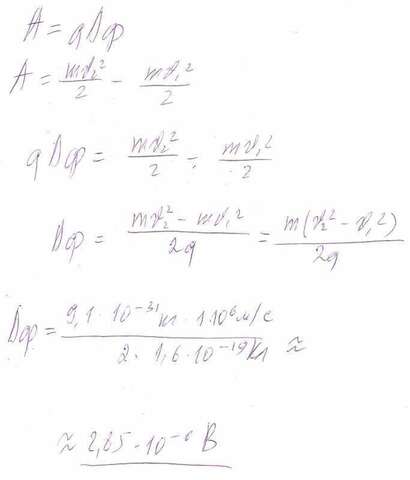 A = qΔφ
A = mv₂²/2 - mv₁²/2
qΔφ = mv₂²/2 - mv₁²/2
Δφ = (mv₂² - mv₁²)/2q = m(v₂² - v₁²)/2q
Δφ = (9,1 · 10⁻³¹ кг · 1·10⁶ м/с)/(2 · 1,6 · 10⁻¹⁹ Кл) ≈
≈ 2,85 · 10⁻⁶ В